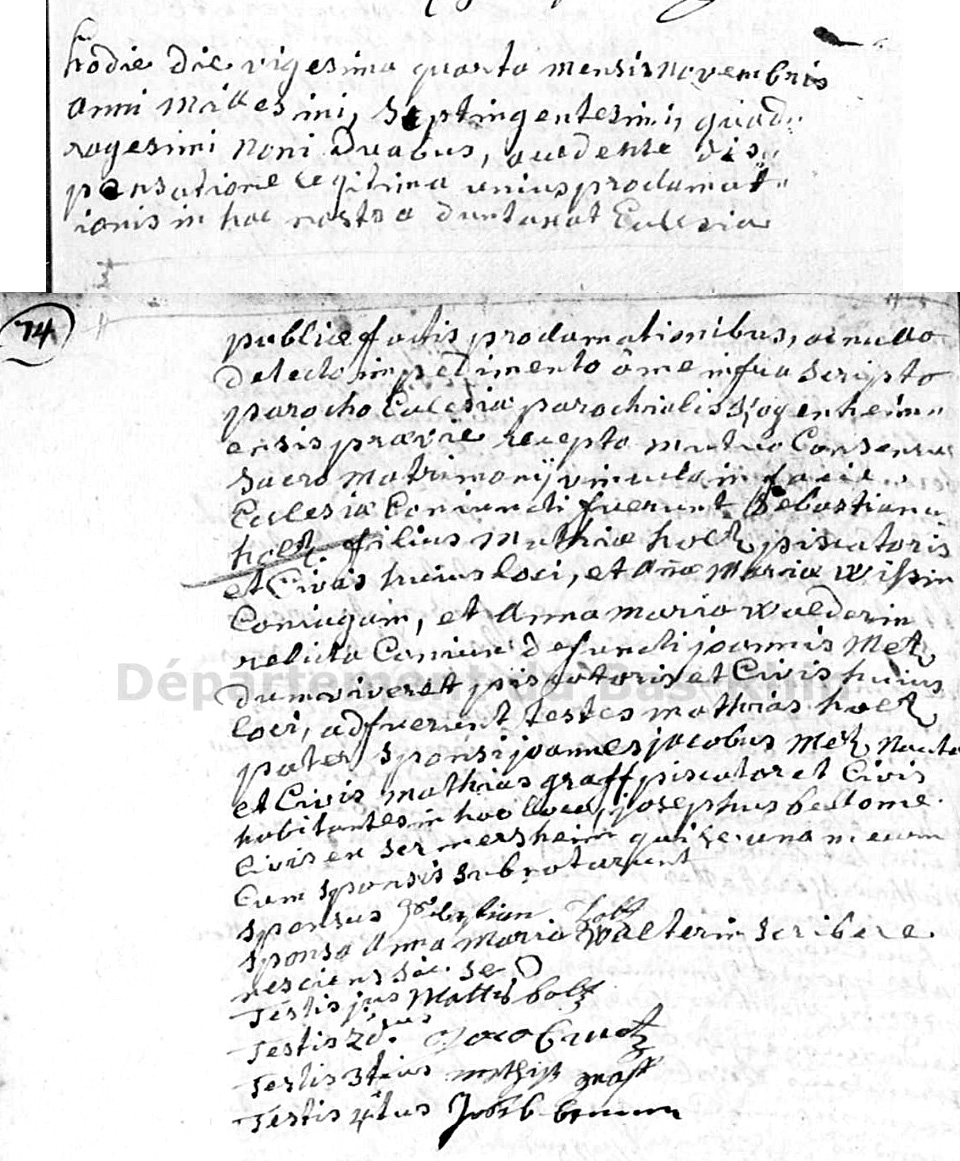 hodie die vigesima quarta mensis novembris
anni millesimi, septingentesimi, quad..
ragesimi noni Duabus, accedente dis..
pensatione legitima unius proclamat..
ionis in hac nostra duntaxat Ecclesia
74
publice factis proclamationibus, ac nullo
detecto impedimento â me infra scripto
parocho Ecclesiæ parochialis
ensis præviè recepto mutuo Consensu
sacro matrimonij vinculo in facie
Ecclesiæ Coniuncti fuerunt Sebastianus
holtz filius mathiæ holtz piscatoris
et Civis huius loci, et Añæ Mariæ
Coniugum, et Anna maria walderin
relicta Coniunx defuncti joannis Metz
dum viveret piscatoris et Civis huius
loci, adfuerunt testes mathias holtz
pater sponsi joannes jacobus Metz nauta
et Civis mathias graff piscator et Civis
habitantes in hoc loco, josephus
Civis ex sermersheim qui se una mecum
Cum sponsis subnotarunt
sponsus holtz
sponsa Anna Maria walterin scribere
nesciens sic se O
Testis jus Mattis holtz
Testis 2dus
Testis 3tius graff
Testis 4tus
Département du Bas-Rhin